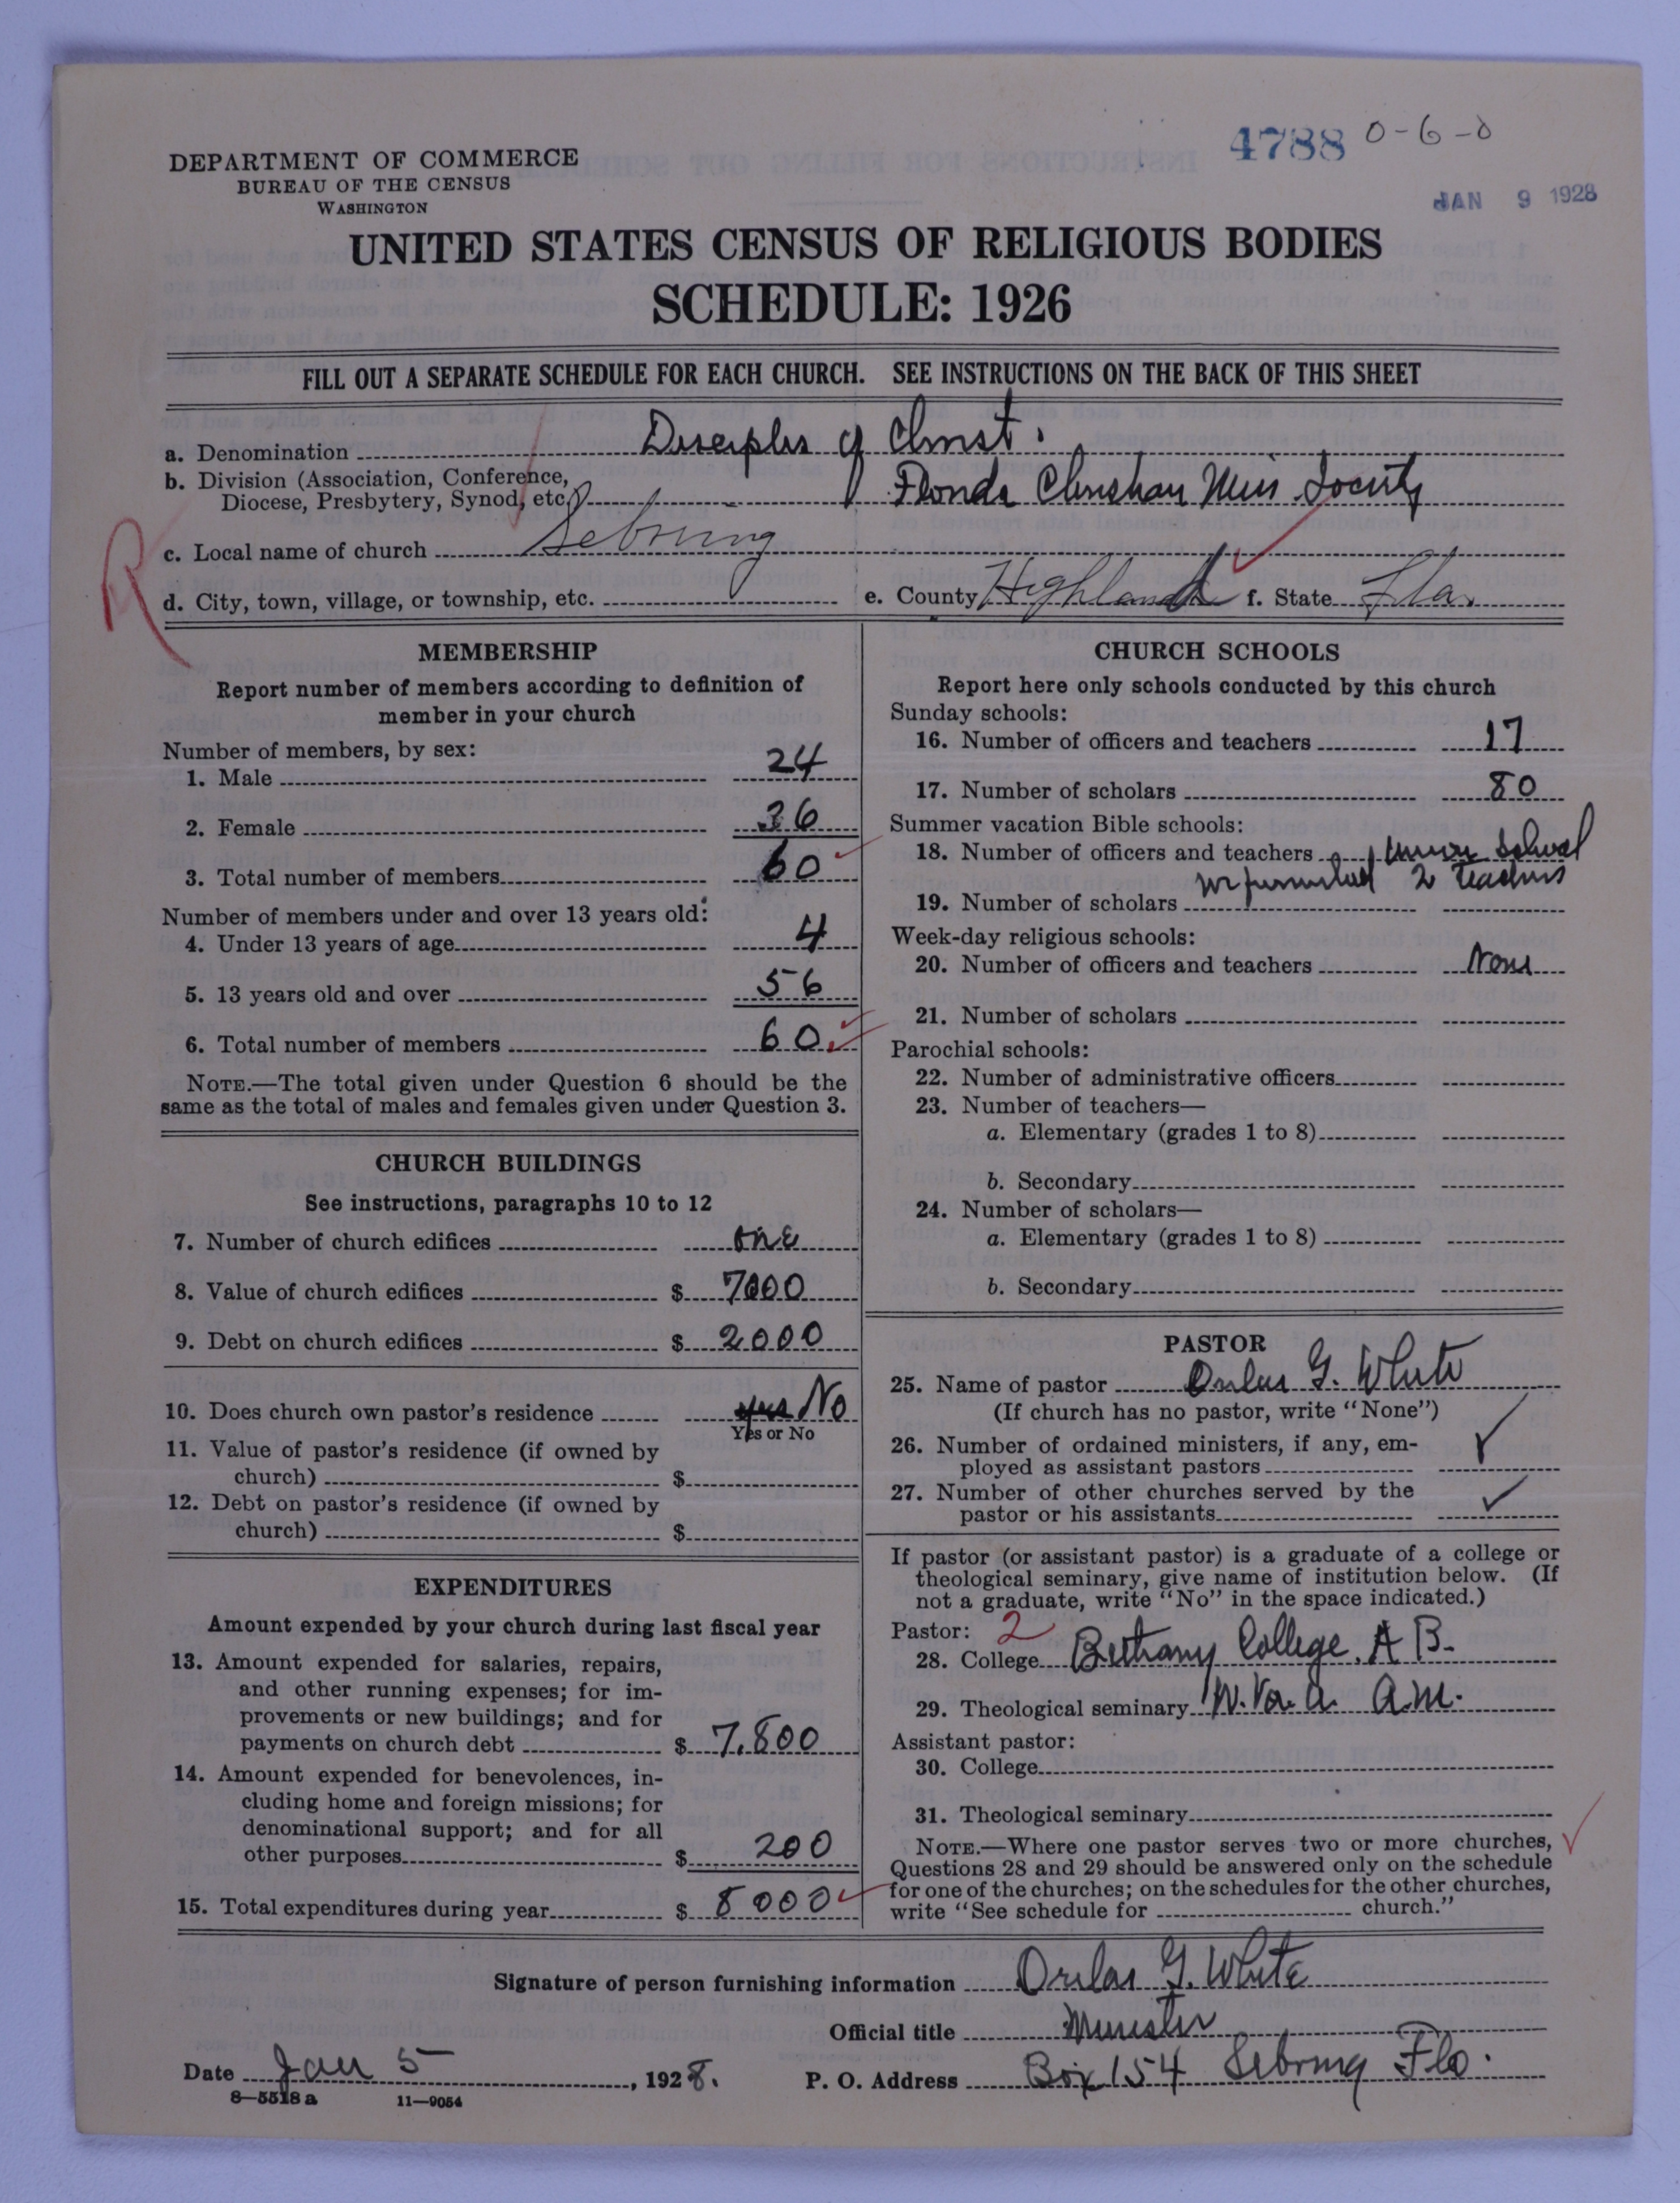 4788 0-6-0
JAN 9 1928
DEPARTMENT OF COMMERCE
BUREAU OF THE CENSUS
WASHINGTON
UNITED STATES CENSUS OF RELIGIOUS BODIES
SCHEDULE: 1926
FILL OUT A SEPARATE SCHEDULE FOR EACH CHURCH. SEE INSTRUCTIONS ON THE BACK OF THIS SHEET
a. Denomination Disciples of Christ.
b. Division (Association, Conference,
Diocese, Presbytery, Synod, etc.) Florida Christian Miss. Society
R
c. Local name of church Sebring
d. City, town, village, or township, etc. e. County Highlands f. State Fla.
MEMBERSHIP
Report number of members according to definition of
member in your church
Number of members, by sex:
1. Male 24
2. Female 36
3. Total number of members 60
Number of members under and over 13 years old:
4. Under 13 years of age 4
5. 13 years old and over 56
6. Total number of members 60
NOTE.—The total given under Question 6 should be the
same as the total of males and females given under Question 3.
CHURCH BUILDINGS
See instructions, paragraphs 10 to 12
7. Number of church edifices one
8. Value of church edifices $ 7000
9. Debt on church edifices $ 2000
10. Does church own pastor's residence yes No
Yes or No
11. Value of pastor's residence (if owned by
church) $
12. Debt on pastor's residence (if owned by
church) $
EXPENDITURES
Amount expended by your church during last fiscal year
13. Amount expended for salaries, repairs,
and other running expenses; for im-
provements or new buildings; and for
payments on church debt $ 7,800
14. Amount expended for benevolences, in-
cluding home and foreign missions; for
denominational support; and for all
other purposes $ 200
15. Total expenditures during year $ 8000
CHURCH SCHOOLS
Report here only schools conducted by this church
Sunday schools:
16. Number of officers and teachers 17
17. Number of scholars 80
Summer vacation Bible schools:
18. Number of officers and teachers Union School
we furnished 2 teachers
19. Number of scholars
Week-day religious schools:
20. Number of officers and teachers None
21. Number of scholars
Parochial schools:
22. Number of administrative officers
23. Number of teachers—
a. Elementary (grades 1 to 8)
b. Secondary
24. Number of scholars—
a. Elementary (grades 1 to 8)
b. Secondary
PASTOR
25. Name of pastor G. White
(If church has no pastor, write "None")
26. Number of ordained ministers, if any, em-
ployed as assistant pastors ✓
27. Number of other churches served by the
pastor or his assistants ✓
If pastor (or assistant pastor) is a graduate of a college or
theological seminary, give name of institution below. (If
not a graduate, write "No" in the space indicated.)
Pastor: 2
28. College Bethany College. A B.
29. Theological seminary W. Va. A.M.
Assistant pastor:
30. College
31. Theological seminary
NOTE.—Where one pastor serves two or more churches,
Questions 28 and 29 should be answered only on the schedule
for one of the churches; on the schedules for the other churches,
write "See schedule for church."
Signature of person furnishing information G. White
Official title Minister
Date Jan 5, 1928. P. O. Address Box 154 Sebring Fla.
8—5518a 11—9054